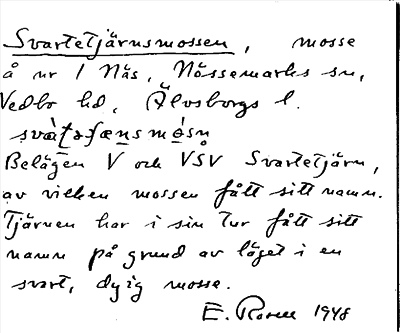 Svartetjärnsmossen, mosse
å nr 1 Näs, Nössemarks sn,
Vedbo hd, Älvsborgs l.
Belägen V och VSV Svartetjärn,
av vilken mossen fått sitt namn.
Tjärnen har i sin tur fått sitt
namn på grund av läget i en
svart, dyig mosse.
E. 1948